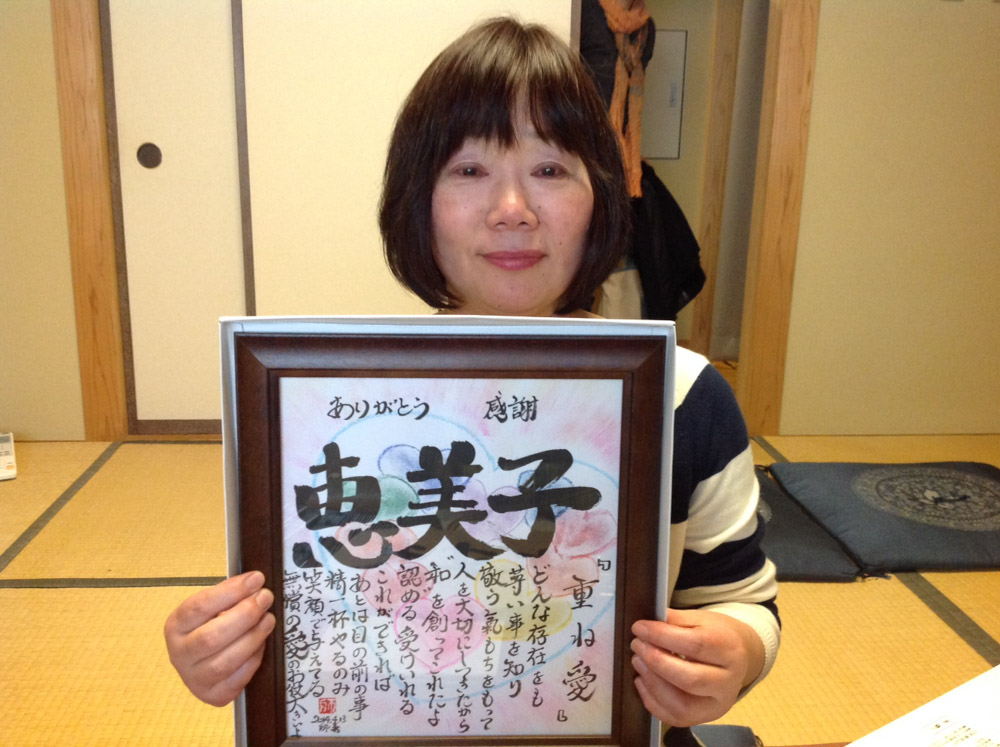 ありがとう　感謝
恵美子
『重ね愛』
どんな存在をも
尊い事を知り
敬う氣もちをもって
人を大切にしてきたから
"和"を創ってこれたよ
認める受けいれる
これができれば
あとは目の前の事
精一杯やるのみ
笑顔で与えてる
無償の愛のお役大きいよ
2014.4.13